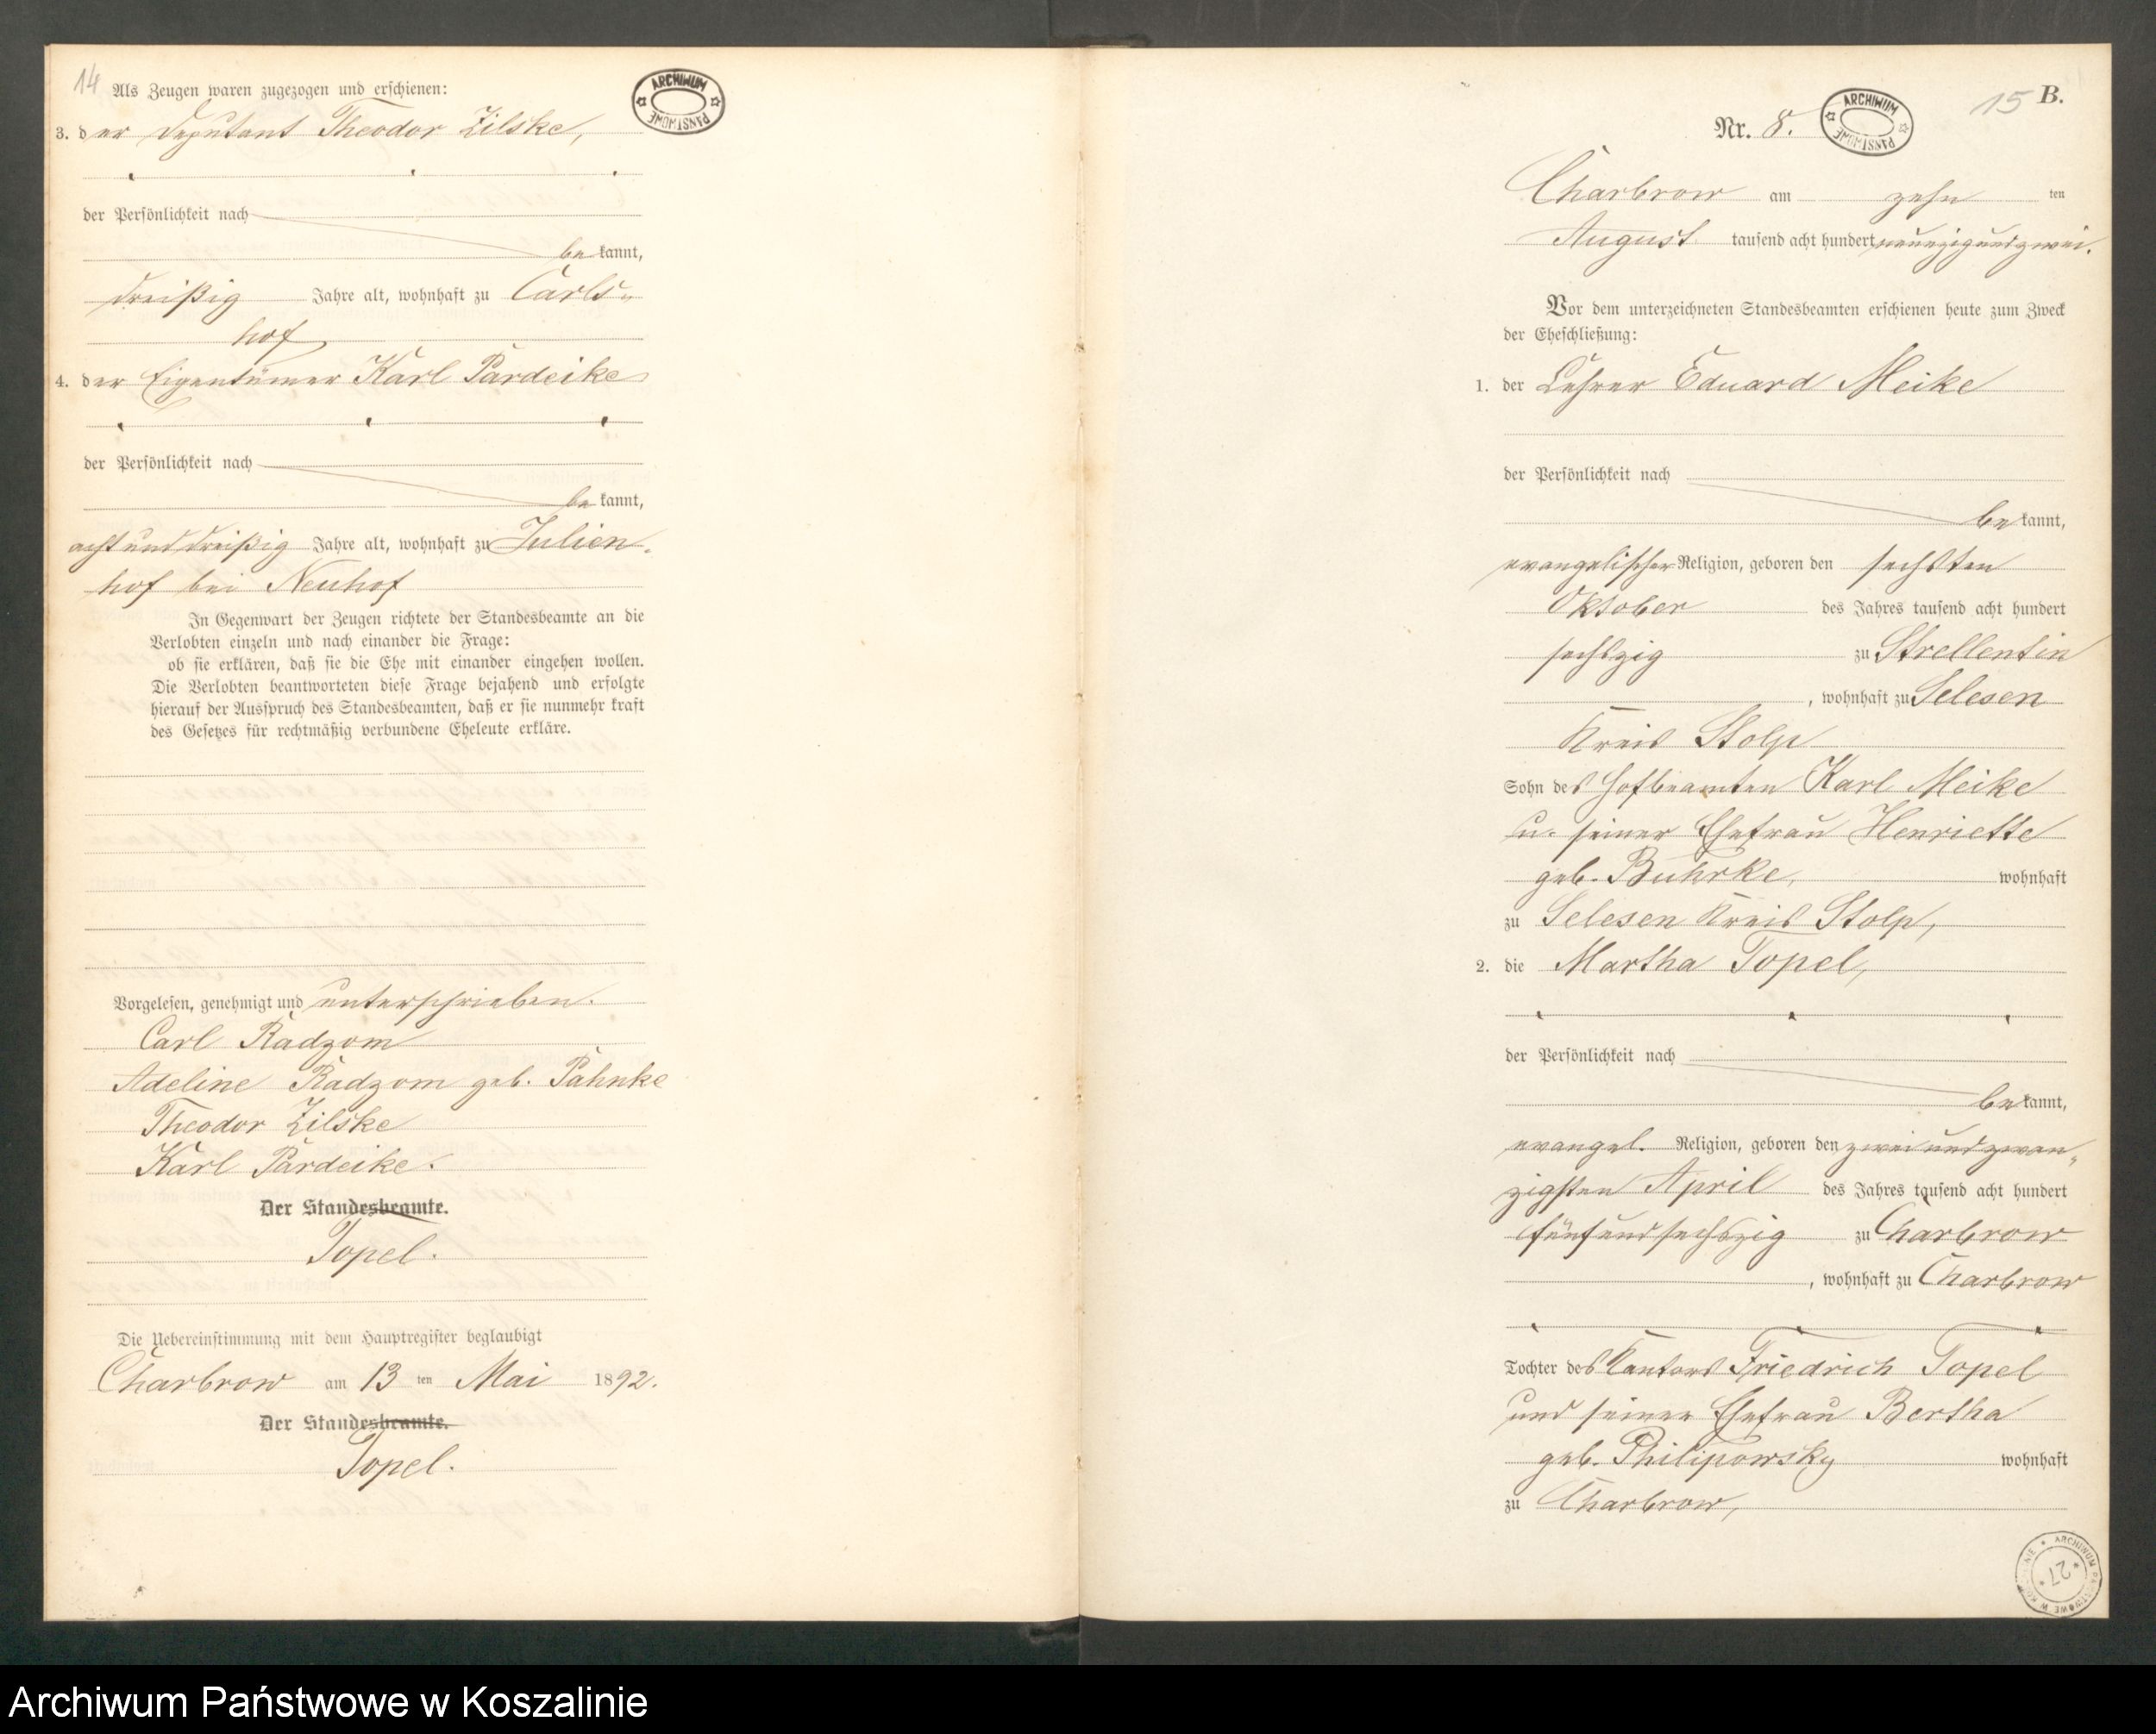 14
Als Zeugen waren zugezogen und erschienen:
ARCHIWUM PAŃSTWOWE
3. der Deputant Theodor Zilske,
der Persönlichkeit nach
bekannt,
dreißig Jahre alt, wohnhaft zu Carls-
hof,
4. der Eigentümer Karl Pardeike
der Persönlichkeit nach
bekannt,
achtunddreißig Jahre alt, wohnhaft zu Julien-
hof bei Neuhof
In Gegenwart der Zeugen richtete der Standesbeamte an die
Verlobten einzeln und nach einander die Frage:
ob sie erklären, daß sie die Ehe mit einander eingehen wollen.
Die Verlobten beantworteten diese Frage bejahend und erfolgte
hierauf der Ausspruch des Standesbeamten, daß er sie nunmehr kraft
des Gesetzes für rechtmäßig verbundene Eheleute erkläre.
Vorgelesen, genehmigt und unterschrieben.
Carl Radzom
Adeline Radzom geb. Pahnke
Theodor Zilske
Karl Pardeike.
Der Standesbeamte.
Topel.
Die Uebereinstimmung mit dem Hauptregister beglaubigt
Charbrow am 13 ten Mai 1892.
Der Standesbeamte.
Topel.
15 B.
Nr. 8.
ARCHIWUM PAŃSTWOWE
Charbrow am zehn ten
August tausend acht hundert neunzigundzwei.
Vor dem unterzeichneten Standesbeamten erschienen heute zum Zweck
der Eheschließung:
1. der Lehrer Eduard Meike
der Persönlichkeit nach
bekannt,
evangelischer Religion, geboren den sechsten
Oktober des Jahres tausend acht hundert
sechszig zu Strellentin
, wohnhaft zu Selesen
Kreis Stolp
Sohn des Hofbeamten Karl Meike
u. seiner Ehefrau Henriette
geb. Buhrke, wohnhaft
zu Selesen Kreis Stolp,
2. die Martha Topel,
der Persönlichkeit nach
bekannt,
evangel. Religion, geboren den zwei und zwan-
zigsten April des Jahres tausend acht hundert
fünfundsechszig zu Charbrow
, wohnhaft zu Charbrow
Tochter des Kantors Friedrich Topel
und seiner Ehefrau Bertha
geb. Philipowsky wohnhaft
zu Charbrow,
ARCHIWUM PAŃSTWOWE W KOSZALINIE
27
Archiwum Państwowe w Koszalinie